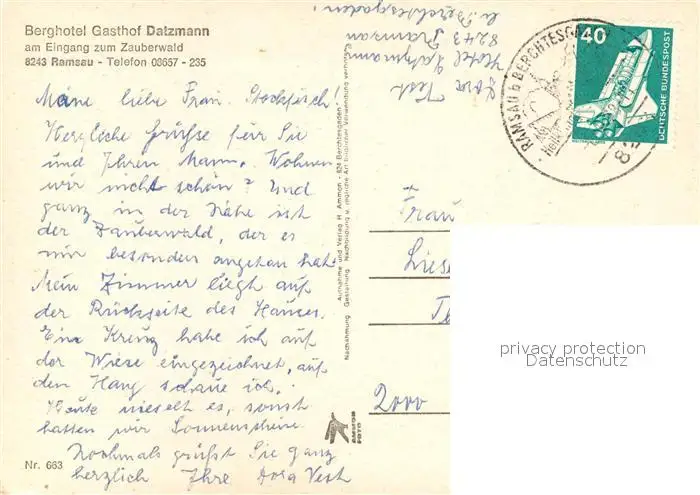 Berghotel Gasthof Datzmann
am Eingang zum Zauberwald
8243 Ramsau - Telefon 08657 - 235
Meine liebe Frau Stockfisch
Herzliche Grüße für Sie
und Ihren Mann. Wohnen
wir nicht schön? Und
ganz in der Nähe ist
der Zauberwald, der es
mir besonders angetan hat.
Mein Zimmer liegt auf
der Rückseite des Hauses.
Ein Kreuz habe ich auf
der Wiese eingezeichnet, auf
den Hang schaue ich.
Heute nieselt es, sonst
hatten wir Sonnenschein.
Nochmals grüßt Sie ganz
herzlich Ihre Dora Vest
Nr. 663
Aufnahme und Verlag H. Ammon - 824 Berchtesgaden
Nachahmung, Gestaltung, Nachbildung u. jegliche Art bildlicher Verwendung verboten
AMMON
FOTO
Dora Vest
Hotel Datzmann
8243 Ramsau
b. Berchtesgaden
RAMSAU b BERCHTESG
40
DEUTSCHE BUNDESPOST
Frau
Liese
2000
privacy protection
Datenschutz